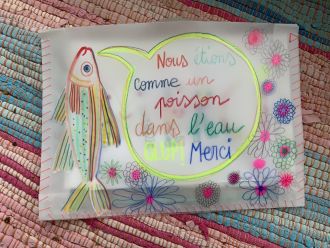 Nous étions
comme un
poisson
dans l'eau
Merci